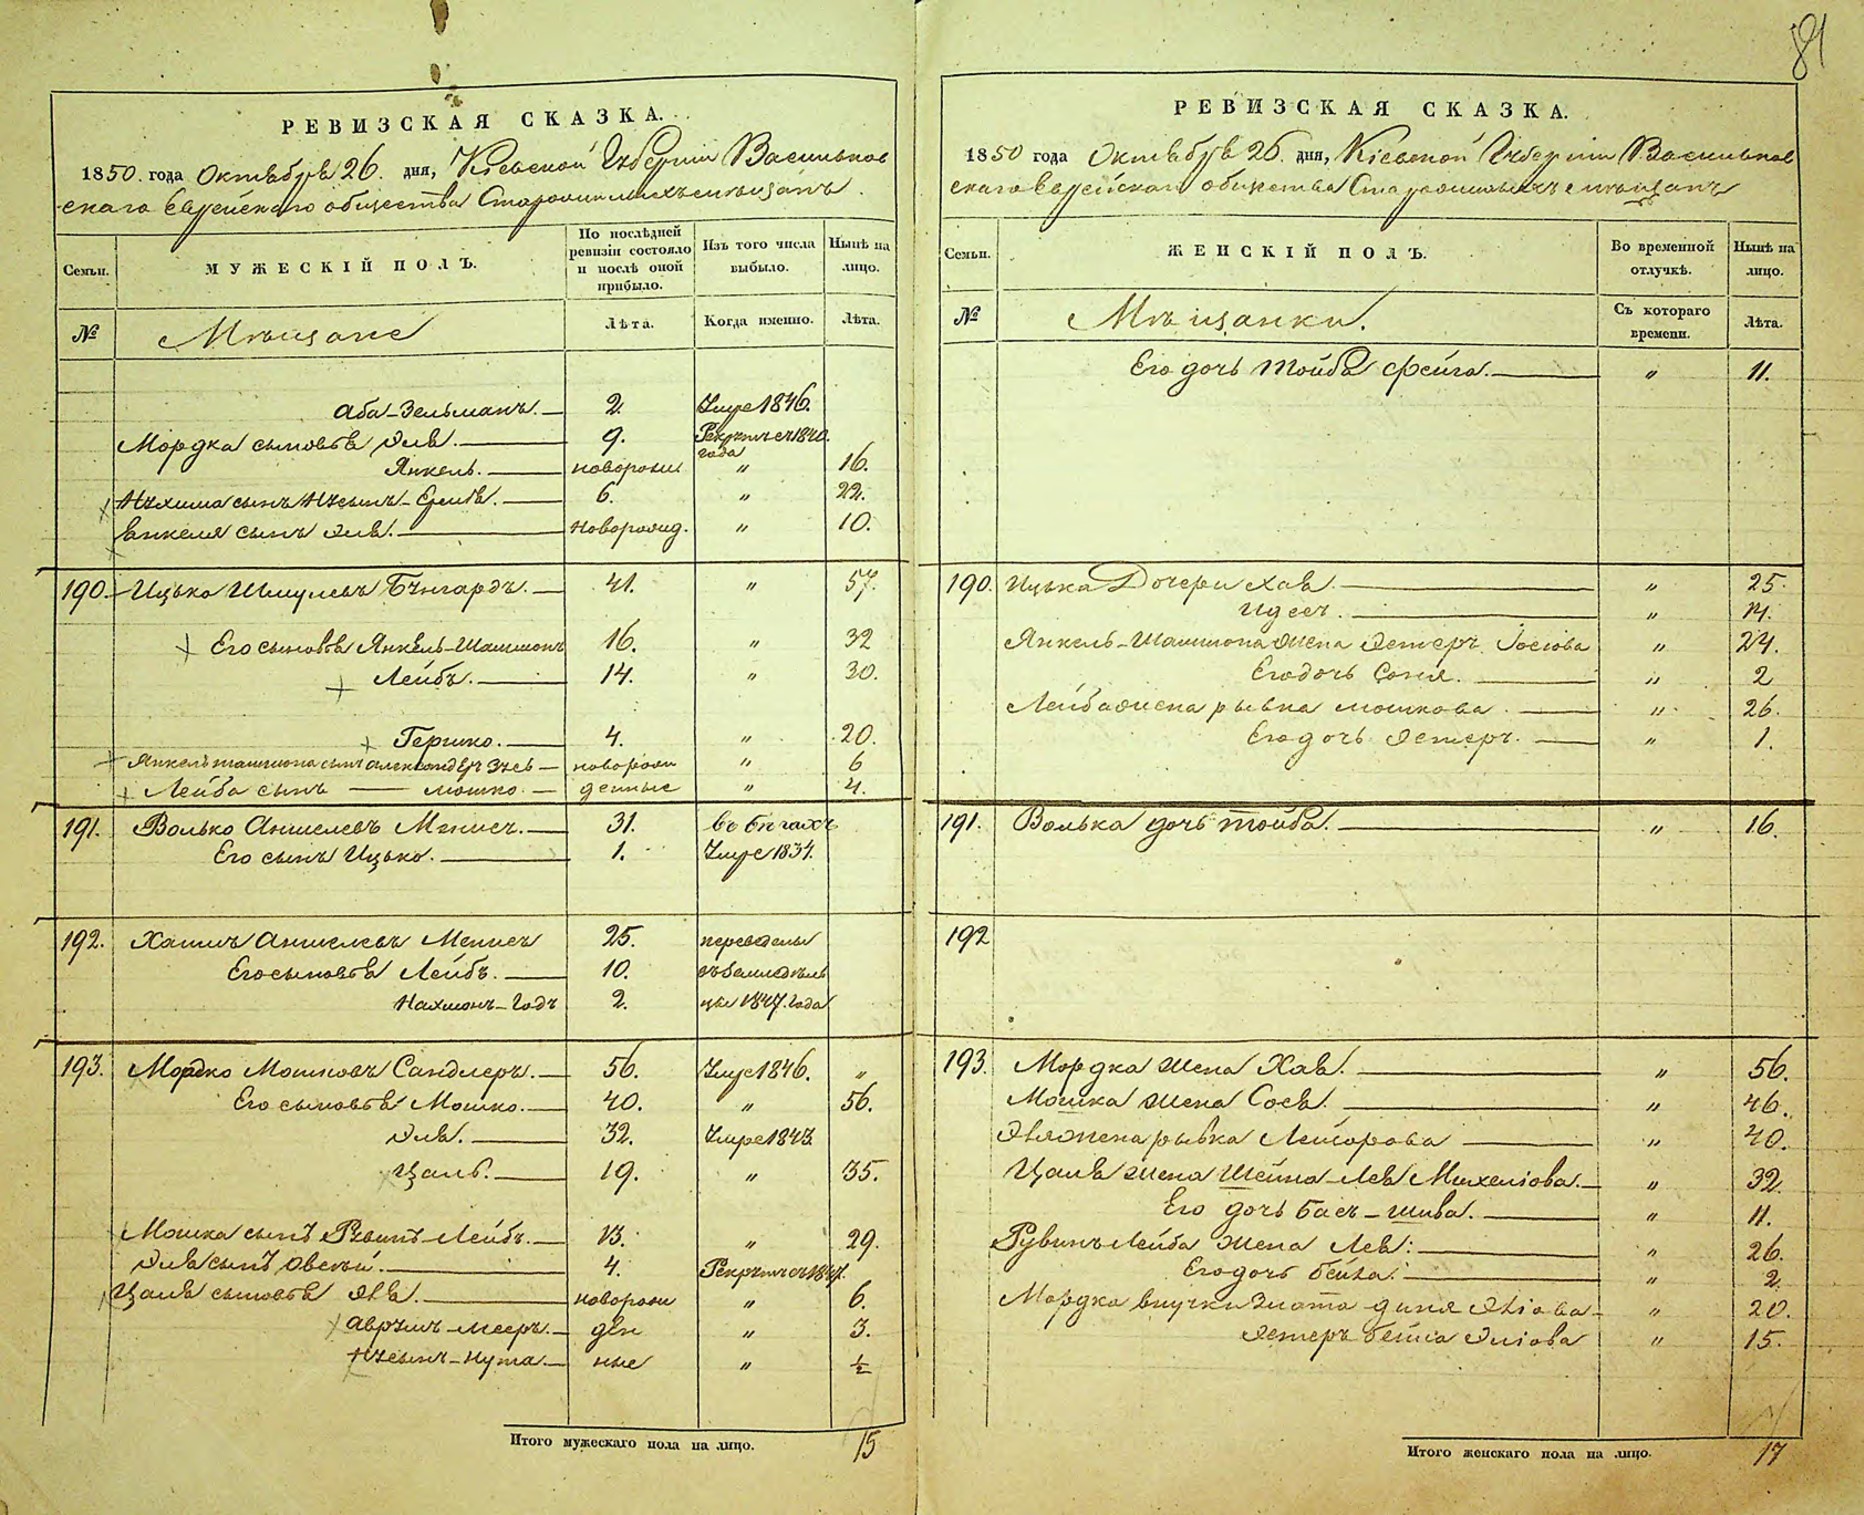 81
РЕВИЗСКАЯ СКАЗКА.
1850. года Октября 26. дня, Кіевской Губерніи Васильков
скаго Еврейскаго общества Старозаконныхъ мѣщанъ.
Семьи. МУЖЕСКІЙ ПОЛЪ. По послѣдней ревизіи состояло и послѣ оной прибыло. Изъ того числа выбыло. Нынѣ на лицо.
№ Мѣщане Лѣта. Когда именно. Лѣта.
Аба-Зельманъ. 2. Умре 1846.
Мордка сыновья Эля. 9. Рекрутъ съ 1840. года
Янкель. новорожд " 16.
Нухима сынъ Нусынъ- 6. " 22.
Янкеля сынъ Эля. новорожд. " 10.
190. Ицько Шмулевъ Бунгардъ. 41. " 57.
Его сыновья Янкель-Шамшонъ 16. " 32
Лейбъ. 14. " 30.
Гершко. 4. " 20.
Янкель шамшона сынъ александеръ Зусь новорож " 6
Лейба сынъ мошко денные " 4.
191. Волько Аншелевъ 31. въ бѣгахъ
Его сынъ Ицько. 1. Умре 1834.
192. Хаимъ Аншелевъ 25. переведены
Его сыновья Лейбъ. 10. въ земледѣль
Нахманъ- 2. цы 1847. года
193. Мордко Мошковъ Сандлеръ. 56. Умре 1846. "
Его сыновья Мошко. 40. " 56.
Эля. 32. Умре 1843.
Цаль. 19. " 35.
Мошка сынъ Рувинъ-Лейбъ. 13. " 29.
Эля сынъ Овсѣй. 4. Рекрутъ съ 1847.
Цаля сыновья новорож " 6.
Аврумъ-Мееръ. ден " 3.
Нусынъ-нута. ные " ½
Итого мужескаго пола на лицо. 15
РЕВИЗСКАЯ СКАЗКА.
1850 года Октября 26. дня, Кіевской Губерніи Васильков
скаго Еврейскаго общества Старозаконныхъ мѣщанъ
Семьи. ЖЕНСКІЙ ПОЛЪ. Во временной отлучкѣ. Нынѣ на лицо.
№ Мѣщанки. Съ котораго времени. Лѣта.
Его дочь Тойба Фейга. " 11.
190. Ицька Дочери Хая " 25.
Идесъ. " 14.
Янкель-Шамшона жена Эстеръ Іосіова " 24.
Его дочь Соня. " 2
Лейба жена рывка мошкова. " 26.
Его дочь Эстеръ. " 1.
191. Волька дочь тойба. " 16.
192
193. Мордка жена Хая. " 56.
Мошка жена Сося. " 46.
Эля жена рывка Лейзорова " 40.
Цаля жена Шейна-Лея Михеліова. " 32.
Его дочь Бася-шива. " 11.
Рувинъ Лейба жена Лея. " 26.
Его дочь Бейла. " 2
Мордка внучки Злата-диня Эліова " 20.
Эстеръ бейла Эліова " 15.
Итого женскаго пола на лицо. 17